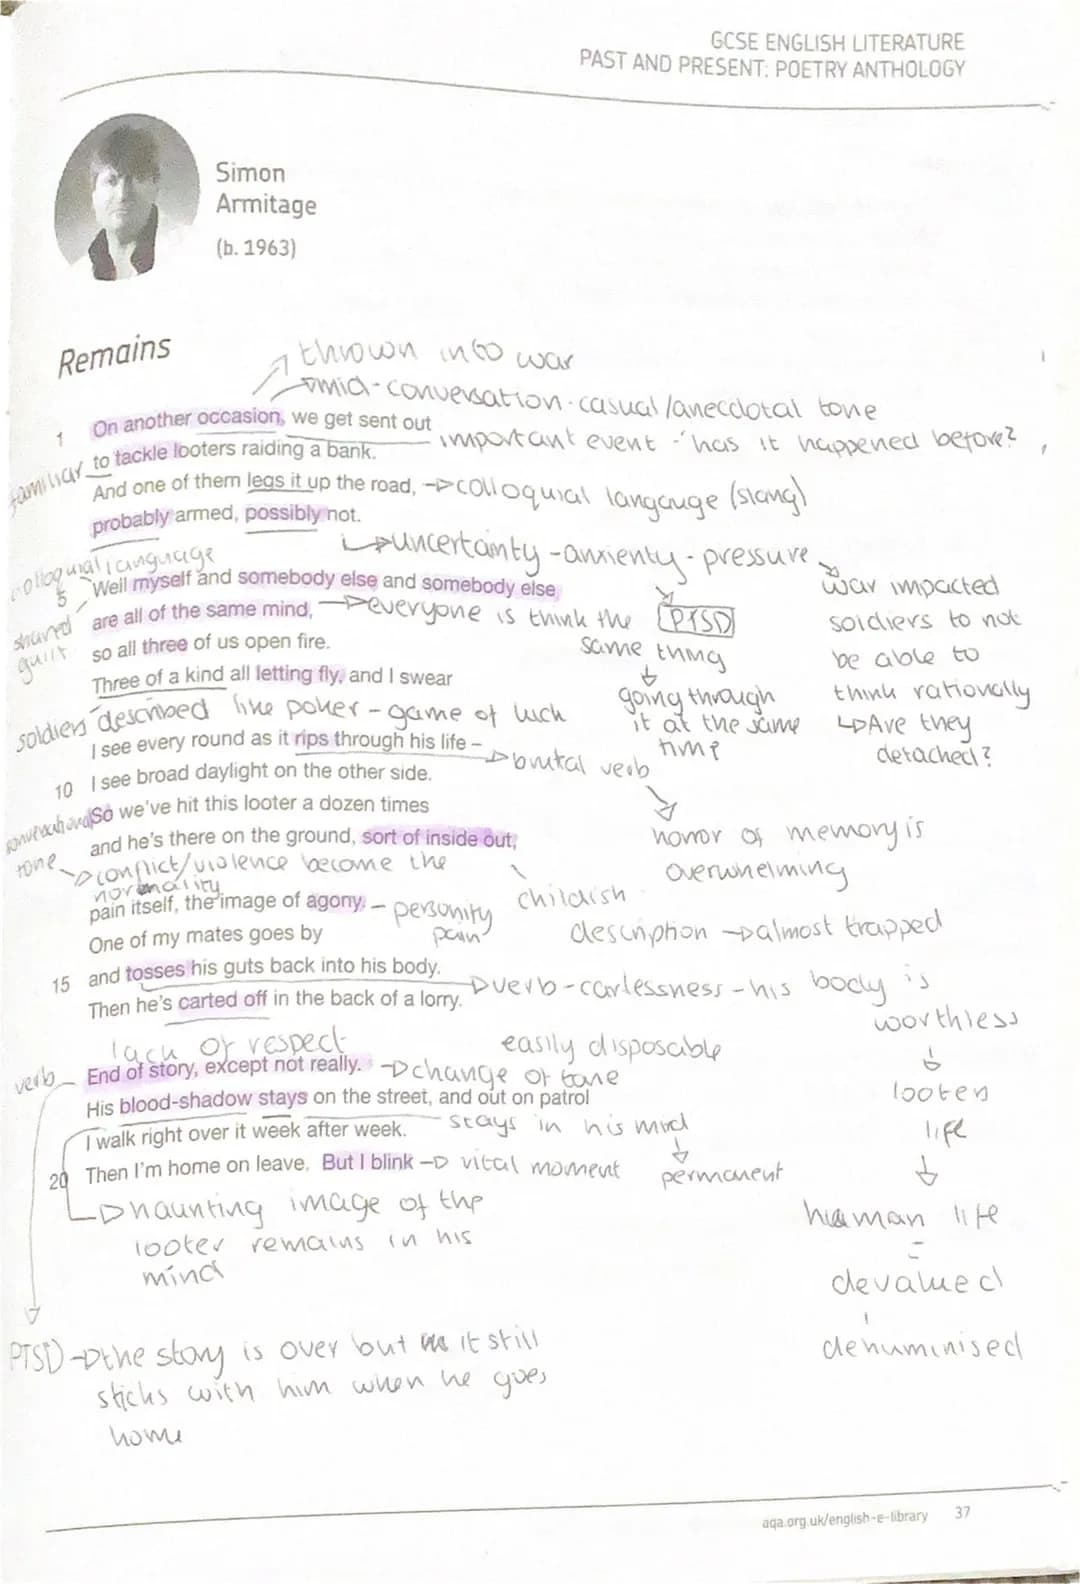 GCSE ENGLISH LITERATURE
PAST AND PRESENT: POETRY ANTHOLOGY
Simon
Armitage
(b. 1963)
Remains
thrown into war
mid-conversation-casual/anecdotal tone
1 On another occasion, we get sent out
important event -'has it happened before?
familiar
to tackle looters raiding a bank.
And one of them legs it up the road, → colloquial langauge (slang)
probably armed, possibly not.
↳ uncertainty-anxienty-pressure
colloquial language
5 Well myself and somebody else and somebody else
war impacted
soldiers to not
be able to
think rationally
↳ Are they
detached?
shared
guilt
are all of the same mind, → everyone is think the
same thing
PTSD
going through
it at the same
time
so all three of us open fire.
Three of a kind all letting fly, and I swear
soldiers described like poker - game of luck
I see every round as it rips through his life –
→ brutal verb
10 I see broad daylight on the other side.
horror of memory is
overwhelming
So we've hit this looter a dozen times
conversational
tone
and he's there on the ground, sort of inside out,
→ conflict/violence become the
normality
childish
description → almost trapped
pain itself, the image of agony. - personity
pain
One of my mates goes by
15 and tosses his guts back into his body.
→ verb-carlessness-his body is
worthless
Then he's carted off in the back of a lorry.
lack of respect
easily disposable
looters
life
human life
=
devalued
dehuminised
verb
End of story, except not really. → change of tone
His blood-shadow stays on the street, and out on patrol
I walk right over it week after week.
stays in his mind
permanent
20 Then I'm home on leave. But I blink → vital moment
↳ haunting image of the
looter remains in his
mind
PTSD → the story is over but it still
sticks with him when he goes
home
aqa.org.uk/english-e-library 37